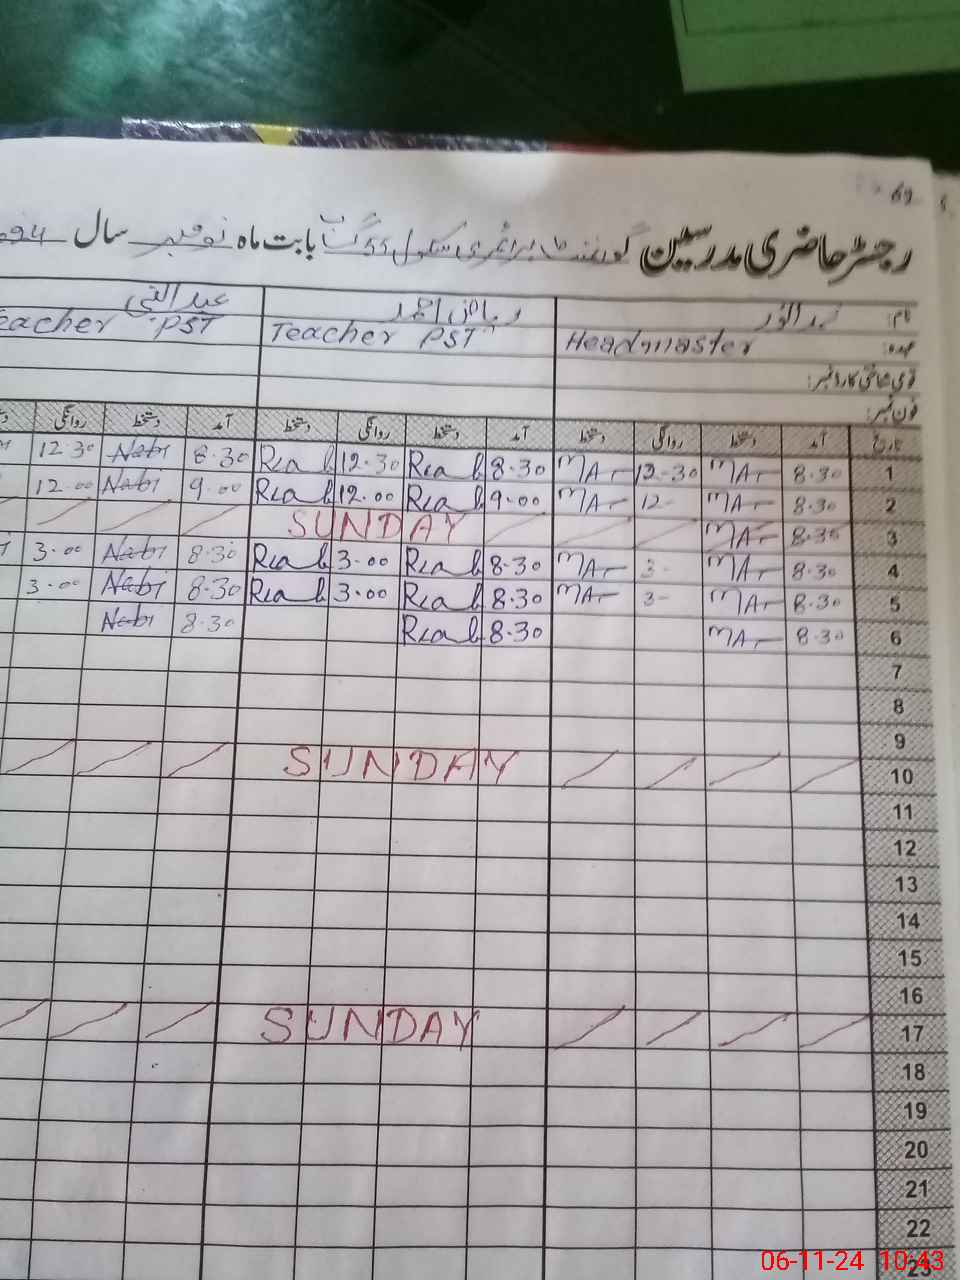 69
رجسٹر حاضری مدرسین گورنمنٹ پرائمری سکول 55 بابت ماہ نومبر سال
نام: ریاض احمد
عہدہ: Headmaster Teacher PST eacher PST
قومی شناختی کارڈ نمبر:
فون نمبر:
تاریخ آمد دستخط روانگی دستخط آمد دستخط روانگی دستخط آمد دستخط روانگی
1 8.30 MA 12-30 MA 8.30 Riaz 12.30 Riaz 8.30 Nabi 12.30
2 8.30 MA 12- MA 9.00 Riaz 12.00 Riaz 9.00 Nabi 12.00
3 8.30 MA SUNDAY
4 8.30 MA 3- MA 8.30 Riaz 3.00 Riaz 8.30 Nabi 3.00
5 8.30 MA 3- MA 8.30 Riaz 3.00 Riaz 8.30 Nabi 3.00
6 8.30 MA 8.30 Riaz 8.30 Nabi
7
8
9
10 SUNDAY
11
12
13
14
15
16
17 SUNDAY
18
19
20
21
22
23
06-11-24 10:43